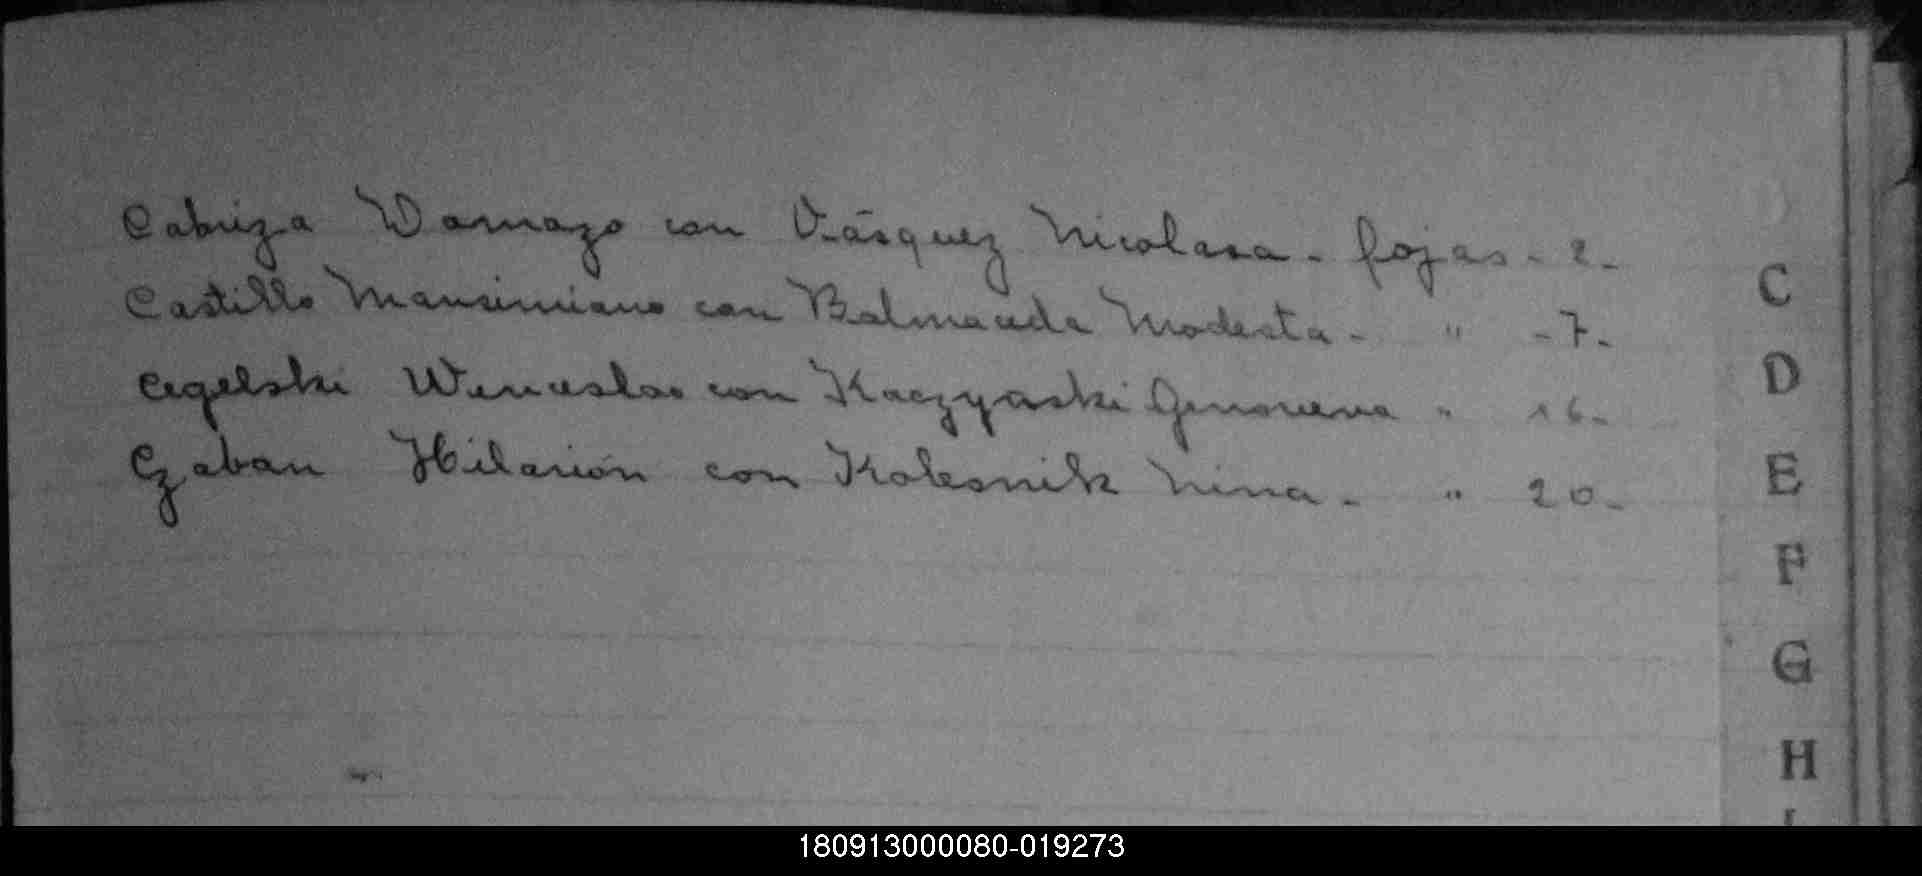 Cabriza Damazo con Vásquez Nicolasa - fojas - 2 -
Castillo Mansimiano con Balmaceda Modesta - " - 7 -
Cegelski Wenceslao con Kaczyaski Genoveva " 16 -
Czaban Hilarión con Kolesnik Nina - " 20 -
C
D
E
F
G
H
180913000080-019273